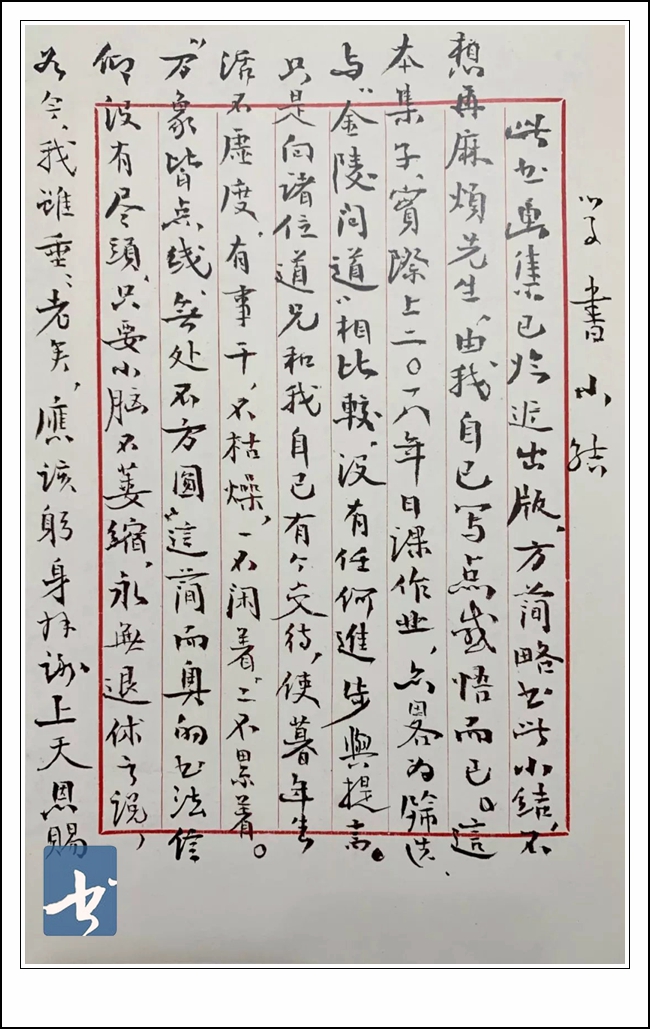 学書小结
此书画集已临近出版，方简略书此小结，不
想再麻煩先生，由我自己写点感悟而已。這
本集子，實際上二〇一八年日課作业，亦畧为篩选，
与“金陵问道”相比較，没有任何進步與提高。
只是向诸位道兄和我自己有个交待，使暮年生
活不虚度，有事干，不枯燥，一不闲着，二不累着。
“万象皆点线，無处不方圆”這简而奥的书法信
仰没有尽頭，只要小脑不萎縮，永無退休之说，
如今，我雖垂垂老矣，應该躬身拜谢上天恩賜
书